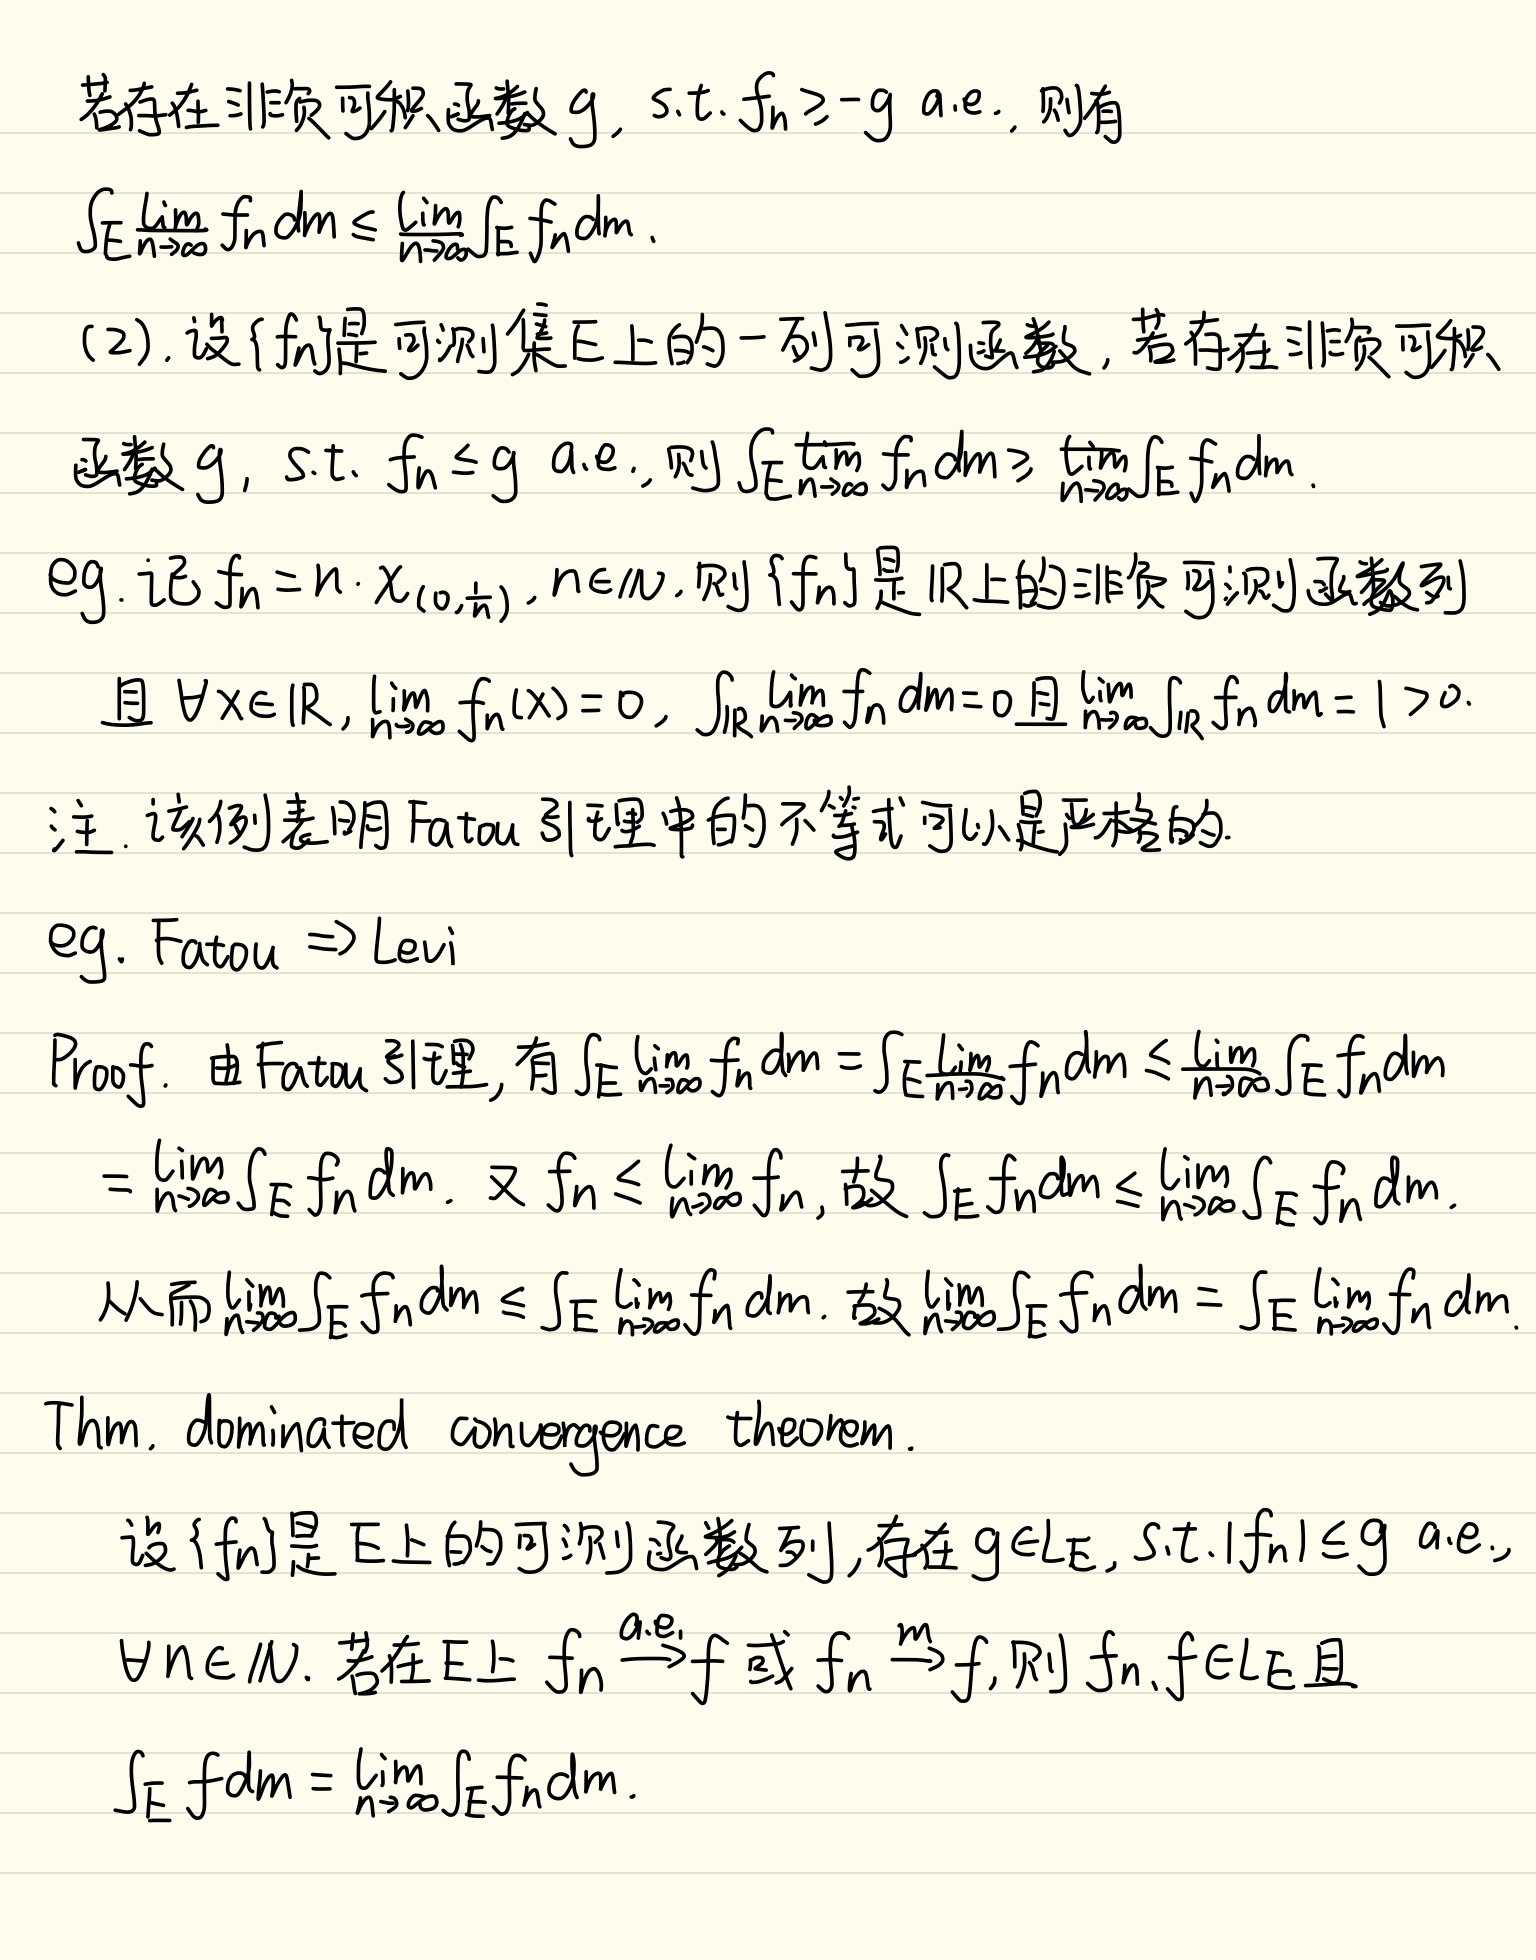 若存在非负可积函数 g, s.t. fₙ ≥ -g a.e., 则有
∫_E \underline{lim}_{n→∞} fₙ dm ≤ \underline{lim}_{n→∞} ∫_E fₙ dm.
(2). 设{fₙ}是可测集E上的一列可测函数, 若存在非负可积
函数 g, s.t. fₙ ≤ g a.e., 则 ∫_E \overline{lim}_{n→∞} fₙ dm ≥ \overline{lim}_{n→∞} ∫_E fₙ dm.
eg. 记 fₙ = n·χ_{(0,1/n)}, n∈ℕ, 则{fₙ}是ℝ上的非负可测函数列
且 ∀x∈ℝ, lim_{n→∞} fₙ(x) = 0, ∫_ℝ lim_{n→∞} fₙ dm = 0 且 lim_{n→∞} ∫_ℝ fₙ dm = 1 > 0.
注. 该例表明 Fatou 引理中的不等式可以是严格的.
eg. Fatou ⇒ Levi
Proof. 由 Fatou 引理, 有 ∫_E lim_{n→∞} fₙ dm = ∫_E \underline{lim}_{n→∞} fₙ dm ≤ \underline{lim}_{n→∞} ∫_E fₙ dm
= lim_{n→∞} ∫_E fₙ dm. 又 fₙ ≤ lim_{n→∞} fₙ, 故 ∫_E fₙ dm ≤ lim_{n→∞} ∫_E fₙ dm.
从而 lim_{n→∞} ∫_E fₙ dm ≤ ∫_E lim_{n→∞} fₙ dm. 故 lim_{n→∞} ∫_E fₙ dm = ∫_E lim_{n→∞} fₙ dm.
Thm. dominated convergence theorem.
设{fₙ}是 E上的可测函数列, 存在 g∈L_E, s.t. |fₙ| ≤ g a.e.,
∀n∈ℕ. 若在E上 fₙ \xrightarrow{a.e.} f 或 fₙ \xrightarrow{m} f, 则 fₙ、f∈L_E 且
∫_E f dm = lim_{n→∞} ∫_E fₙ dm.